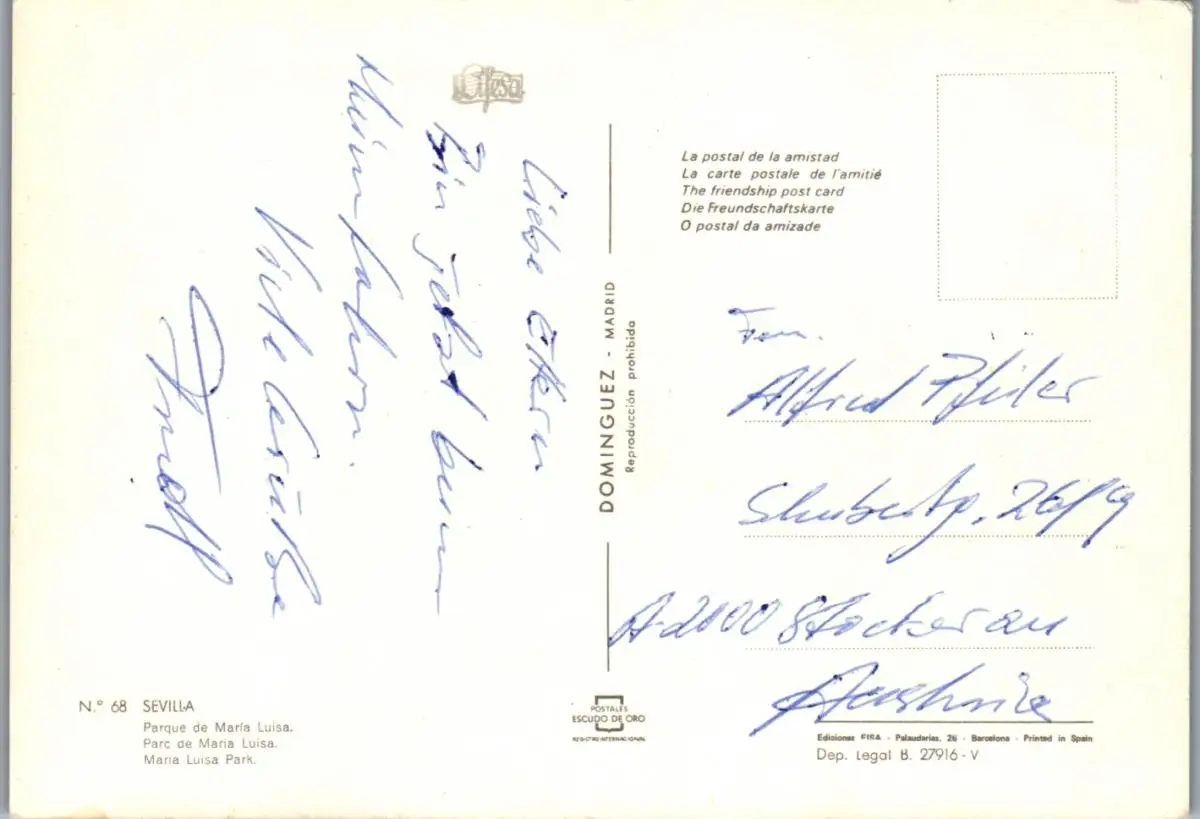 fisa
Liebe Eltern
Bin jetzt beim
Heimfahren.
Viele Grüße
DOMINGUEZ - MADRID
Reproducción prohibida
La postal de la amistad
La carte postale de l'amitié
The friendship post card
Die Freundschaftskarte
O postal da amizade
Fam.
Alfred Pfeiler
Schubertg. 26/9
A-2000 Stockerau
Austria
N.º 68 SEVILLA
Parque de María Luisa.
Parc de Maria Luisa.
Maria Luisa Park.
POSTALES
ESCUDO DE ORO
REGISTRO INTERNACIONAL
Ediciones FISA - Palaudarias, 26 - Barcelona - Printed in Spain
Dep. Legal B. 27916-V